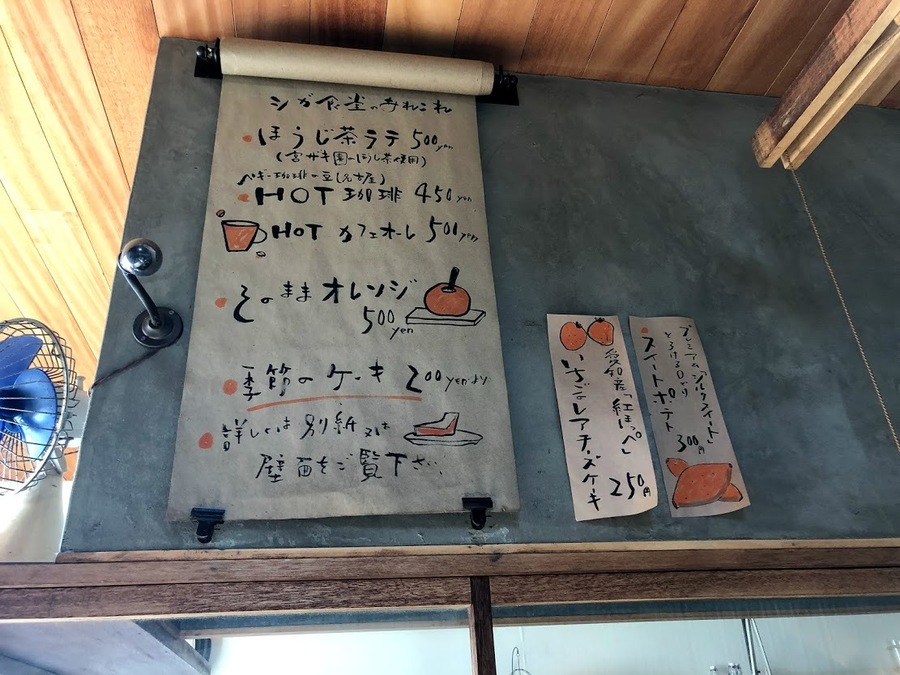 シガ食堂のあれこれ
ほうじ茶ラテ 500yen
(宮ザキ園のほうじ茶使用)
HOT 珈琲 450yen
HOT カフェオーレ 500yen
そのままオレンジ
500yen
季節のケーキ 200yenより
詳しくは別紙又は
壁面をご覧下さい
愛知産「紅ほっぺ」
いちごのレアチーズケーキ
250円
プレミアム「シルクスイート」
とろけるような
スイートポテト
300円